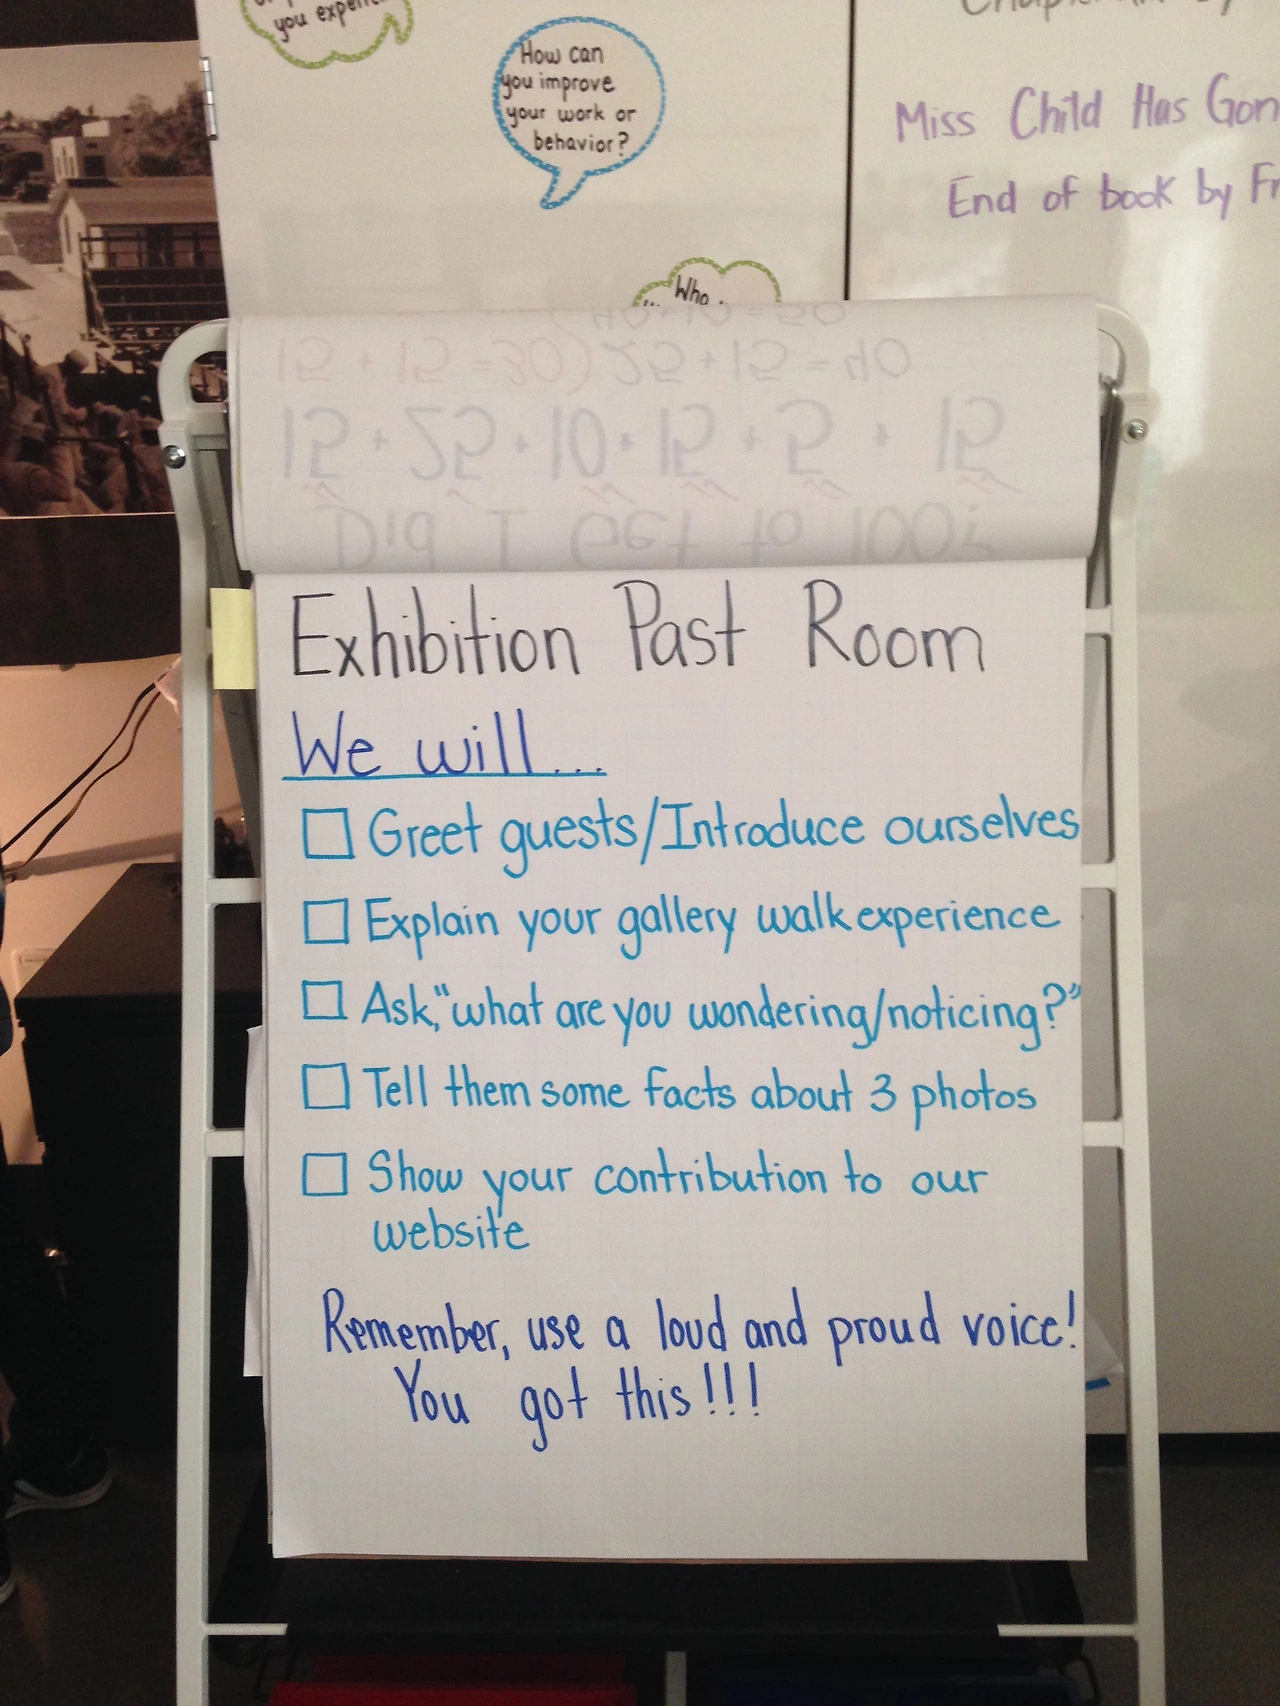 you experien
How can
you improve
your work or
behavior?
Miss Child Has Gon
End of book by Fr
Who
40+10=50
15 + 15 = 30) 25 + 15 = 40
15 + 25 + 10 + 15 + 5 + 15
Did I Get to 100?
Exhibition Past Room
We will...
Greet guests/Introduce ourselves
Explain your gallery walk experience
Ask, "what are you wondering/noticing?"
Tell them some facts about 3 photos
Show your contribution to our
website
Remember, use a loud and proud voice!
You got this!!!